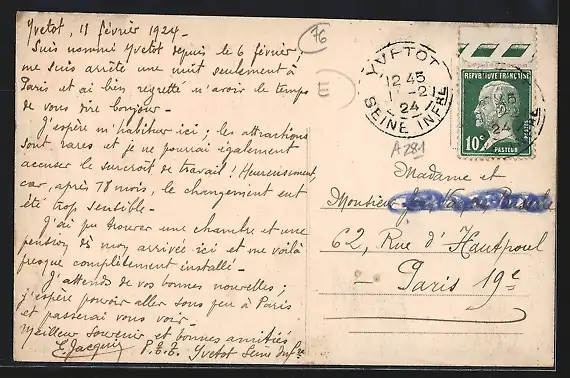 Yvetot, 11 février 1924 -
Suis nommé Yvetot depuis le 6 février,
me suis arrêté une nuit seulement à
Paris et ai bien regretté n'avoir le temps
de vous dire bonjour -
J'espère m'habituer ici ; les attractions
sont rares et je ne pourrai également
accuser le surcroît de travail ! Heureusement,
car, après 18 mois, le changement eut
été trop sensible -
J'ai pu trouver une chambre et une
pension dès mon arrivée ici et me voilà
presque complètement installé -
J'attends de vos bonnes nouvelles ;
j'espère pouvoir aller sous peu à Paris
et passerai vous voir -
Meilleur souvenir et bonnes amitiés
E. Jacquin P.T.T. Yvetot Seine Infre
76
E
YVETOT
12 45
11 -2
24
SEINE INFRE
A 281
REPUBLIQUE FRANÇAISE
10c
POSTES
PASTEUR
Madame et
Monsieur
62, Rue d'Hautpoul
Paris 19e